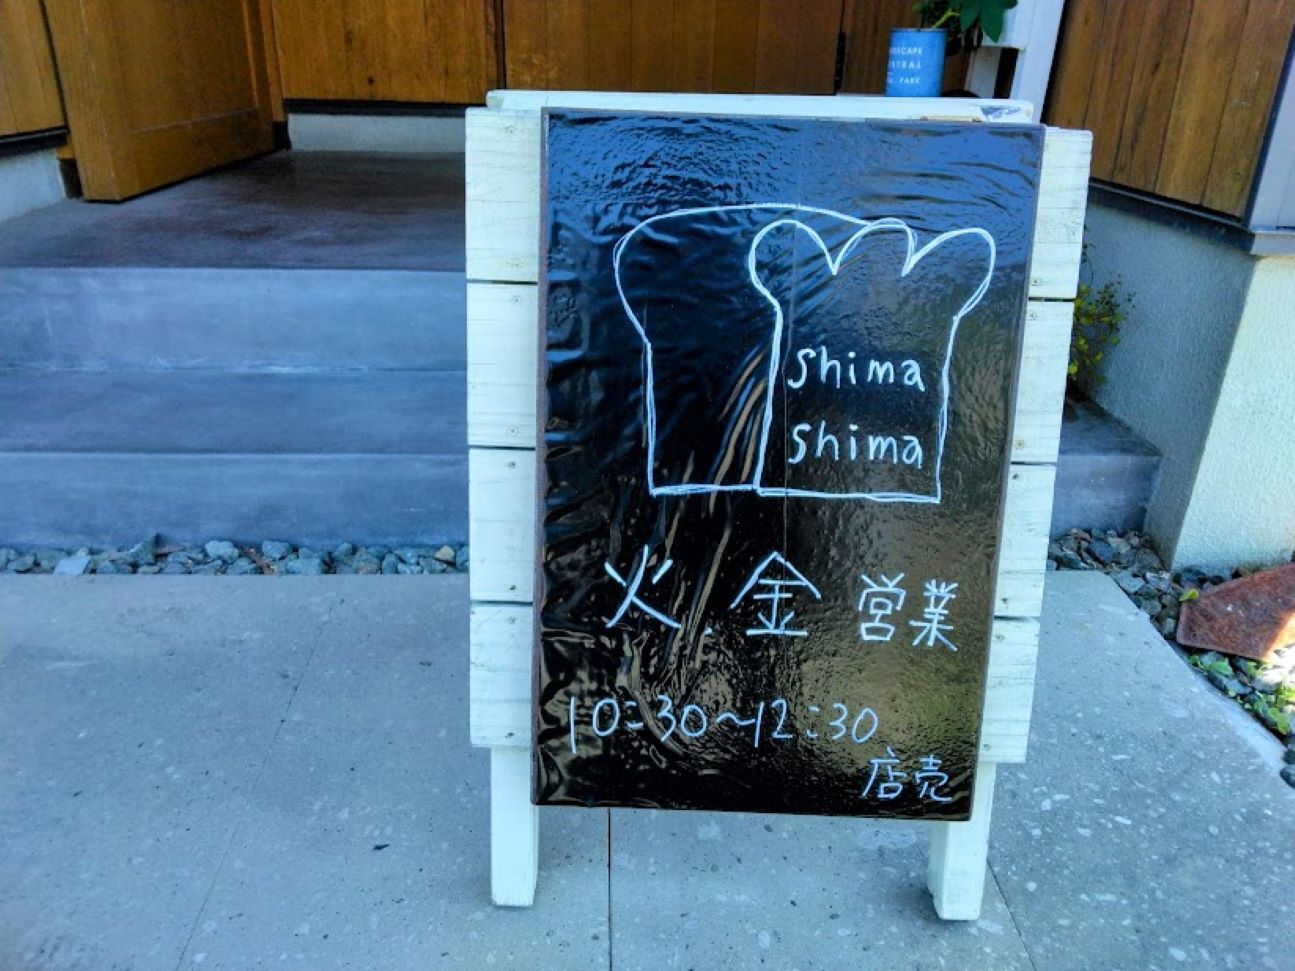 shima
shima
火.金 営業
10:30〜12:30
店売